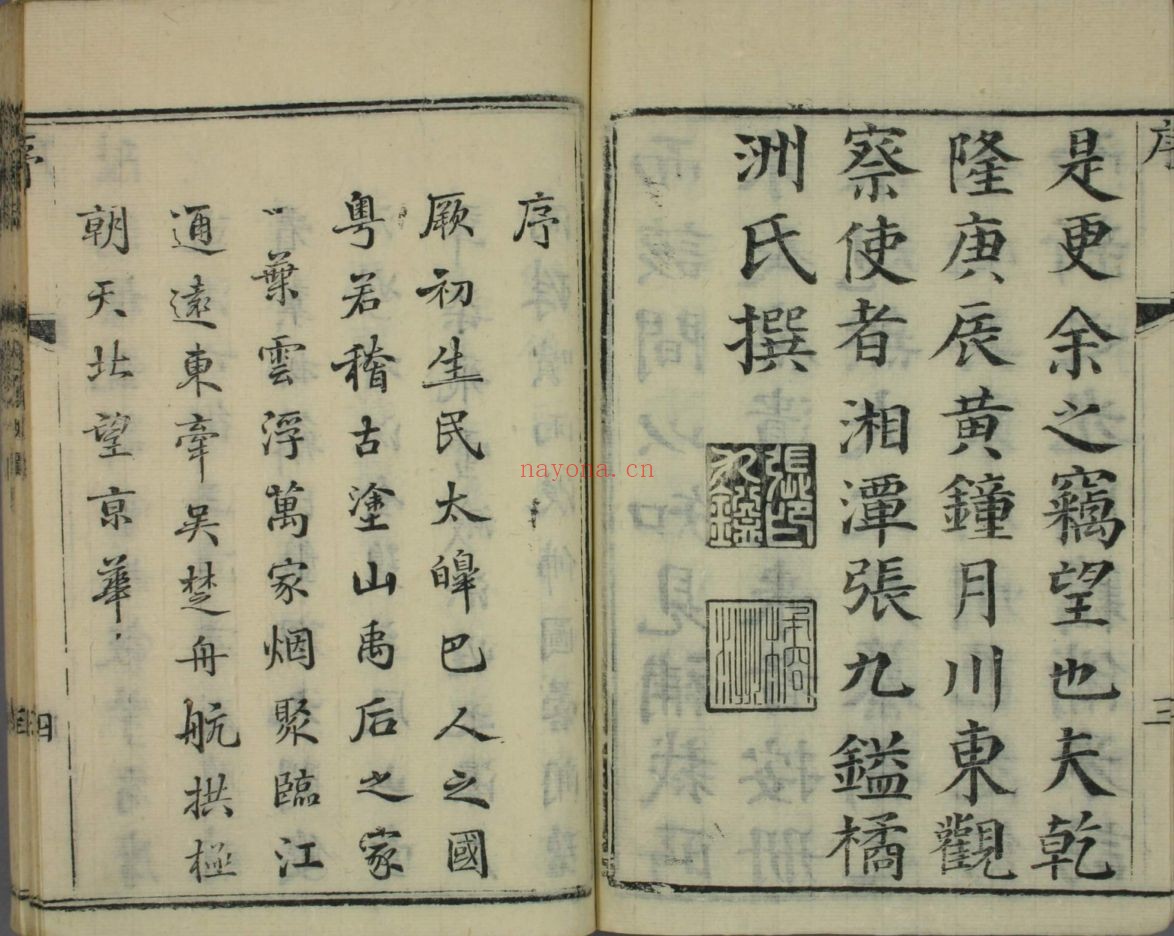 序
三
是更余之竊望也夫乾
隆庚辰黃鐘月川東觀
察使者湘潭張九鎰橘
洲氏撰
張印
九鎰
橘洲
序
厥初生民太皡巴人之國
粤若稽古塗山禹后之家
一葉雲浮萬家烟聚臨江
通遠東牽吳楚舟航拱極
朝天北望京華
序
四
nayona.cn